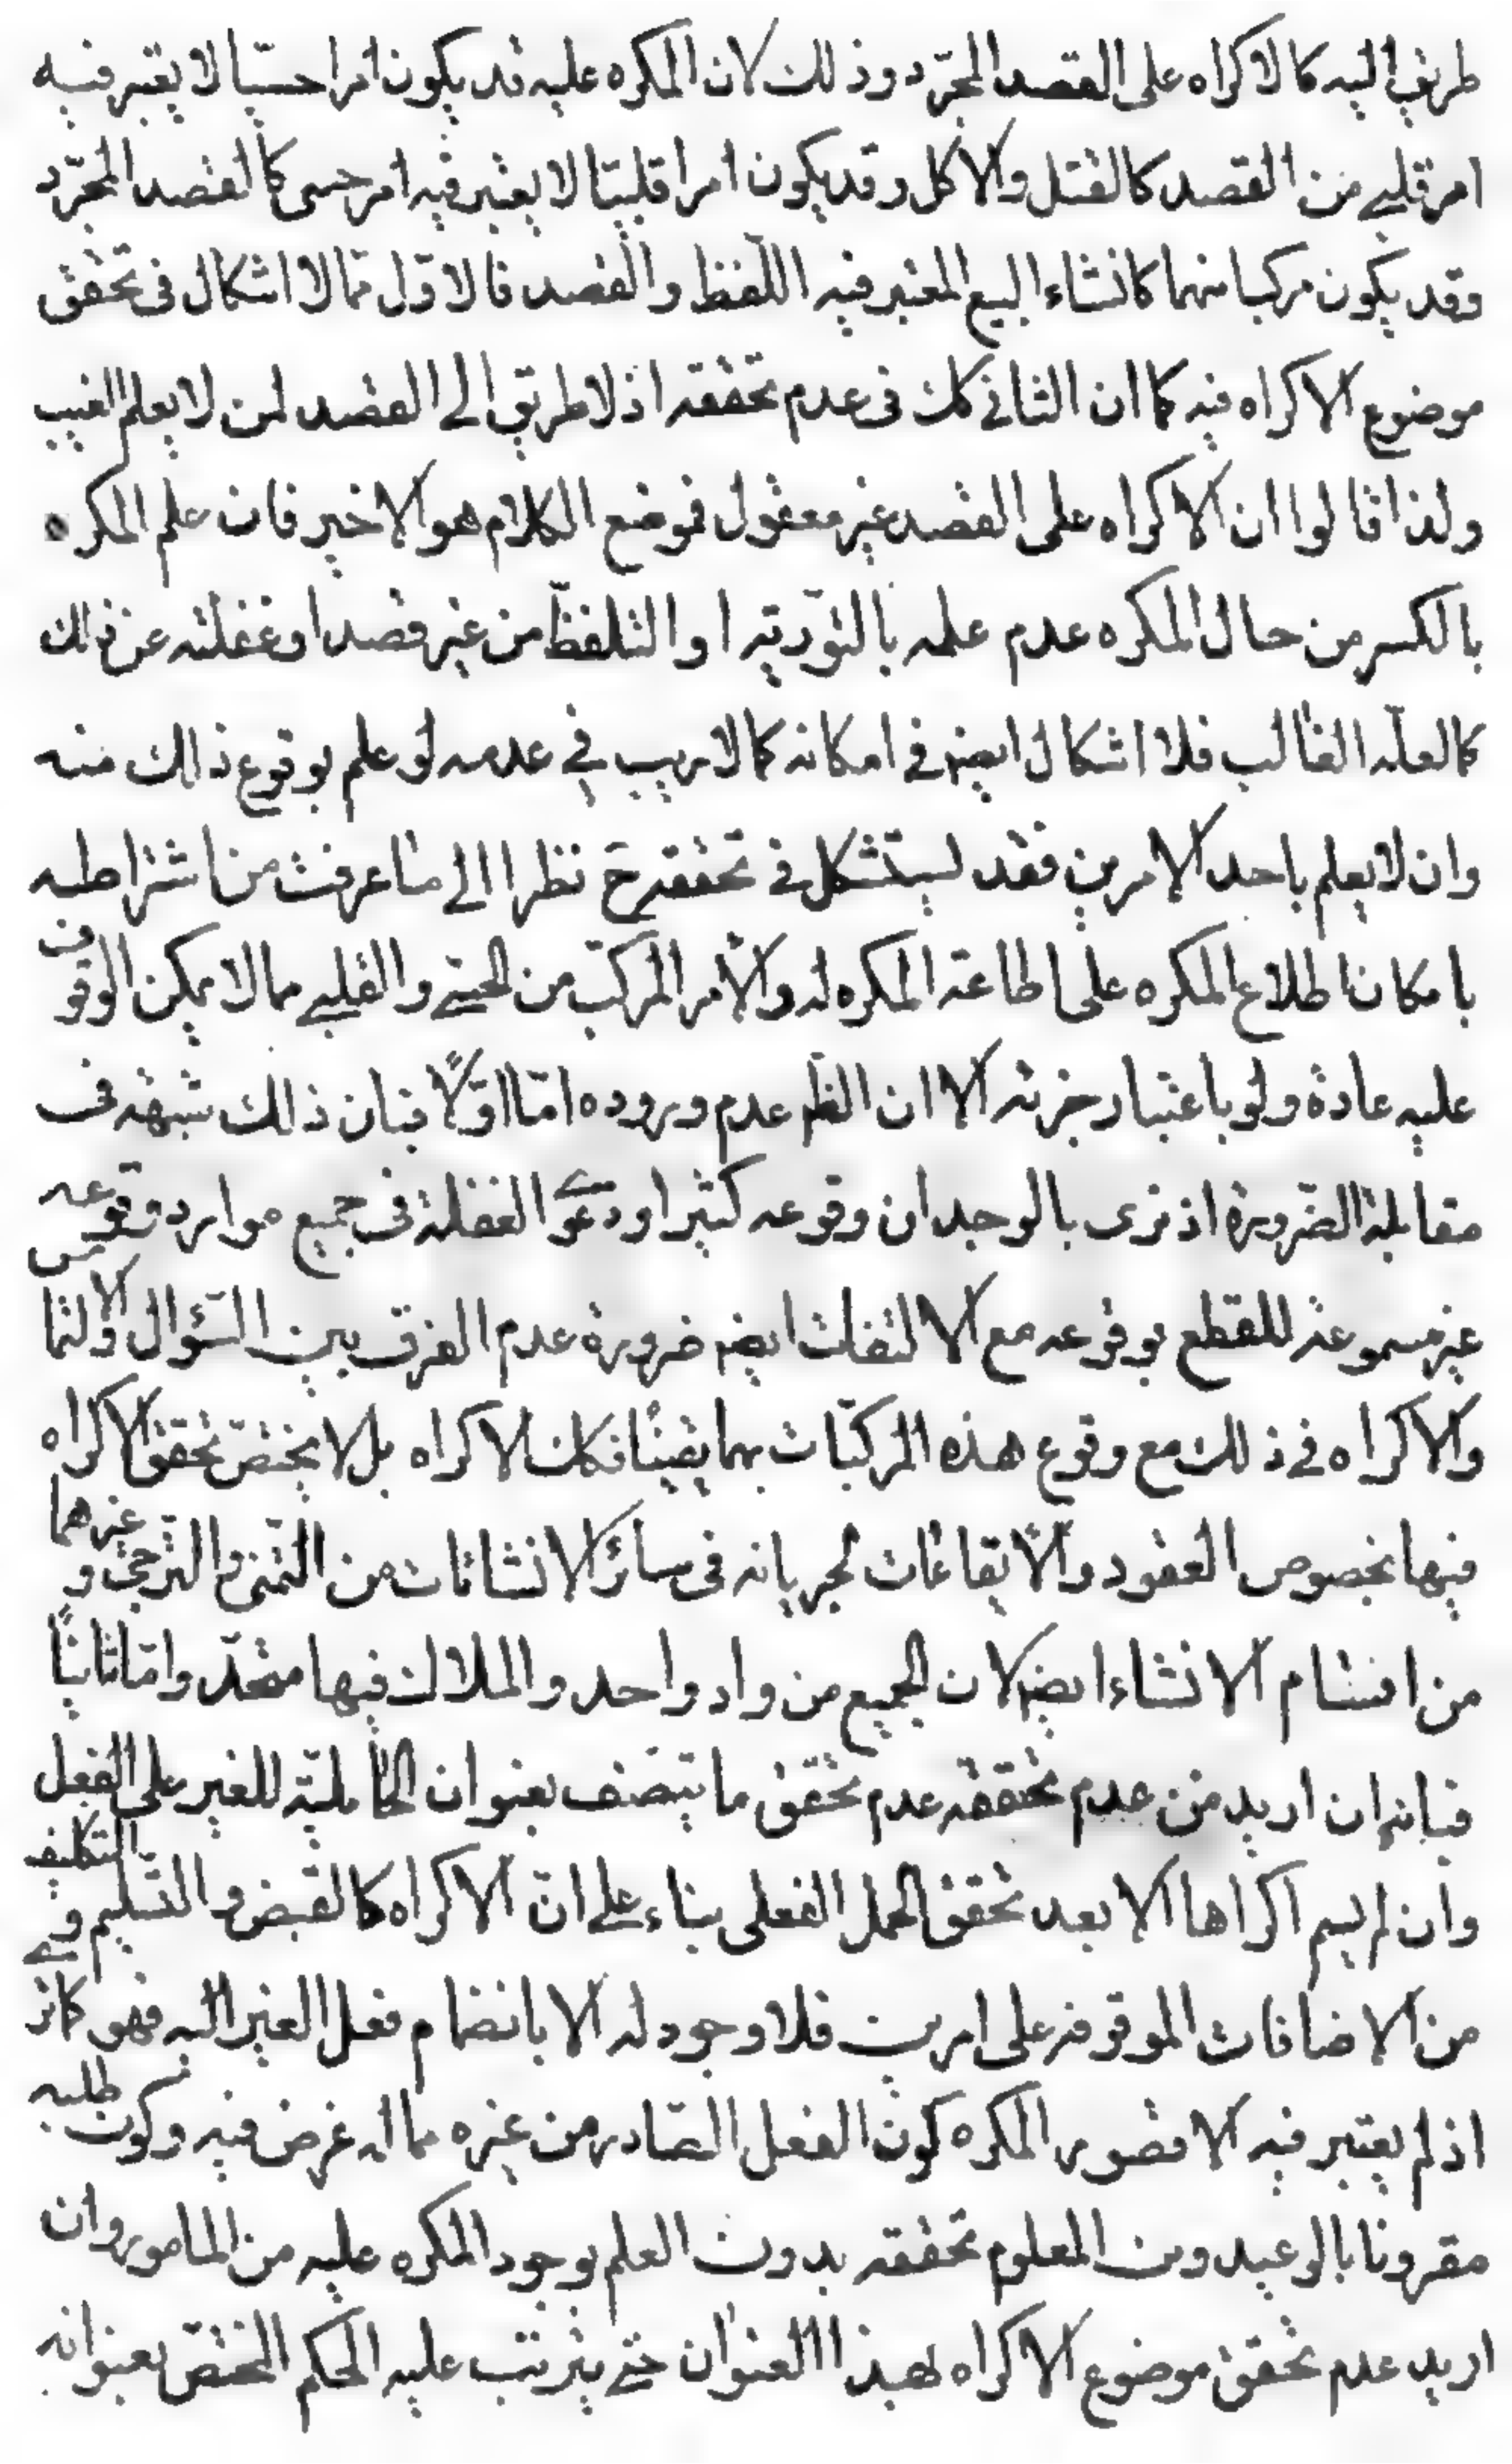 طريق اليه كالاكراه على القصد المجرّد وذلك لان المكره عليه قد يكون امرا حسيّا لا يعتبر فيه
امر قلبي من القصد كالقتل والاكل وقد يكون امرا قلبيّا لا يعتبر فيه امر حسى كالقصد المجرّد
وقد يكون مركبا منهما كانشاء البيع المعتبر فيه اللّفظ والقصد فالاوّل ممّا لا اشكال فى تحقق
موضوع الاكراه فيه كما ان الثانى كك فى عدم تحققه اذ لا طريق الى القصد لمن لا يعلم الغيب
ولذا قالوا ان الاكراه على القصد غير معقول فوضع الكلام هو الاخير فان علم المكره
بالكسر من حال المكره عدم علمه بالتّورية او التلفّظ من غير قصد او غفلته عن ذلك
كما لعلّه الغالب فلا اشكال ايضا فى امكانه كما لا ريب في عدمه لو علم بوقوع ذلك منه
وان لا يعلم باحد الامرين فقد يستشكل فى تحققه ح نظرا الى ما عرفت من اشتراطه
بامكان اطلاع المكره على اطاعة المكره له والامر المركّب من الحسّى والقلبى مما لا يمكن الوقوف
عليه عادة ولو باعتبار جزئه الا ان الظم عدم وروده امّا اوّلًا فبان ذلك شبهة فى
مقابلة الضّرورة اذ نرى بالوجدان وقوعه كثيرا ودعوى الغفلة فى جميع موارد وقوعه
غير مسموعة للقطع بوقوعه مع الالتفات ايضا ضرورة عدم الفرق بين السّؤال والالتماس
والاكراه فى ذلك مع وقوع هذه المركبّات بهما يقينًا فكك الاكراه بل لا يختصّ تحقق الاكراه
فيها بخصوص العقود والايقاعات لجريانه فى سائر الانشائات من التّمنى والتّرجى وغيرهما
من اقسام الانشاء ايضا لان الجميع من واد واحد والملاك فيها متّحد وامّا ثانيًا
فبانه ان اريد من عدم تحققه عدم تحقق ما يتّصف بعنوان الحامليّة للغير على الفعل
وان لم يسم اكراها الا بعد تحقق الحمل الفعلى بناء على انّ الاكراه كالقبض والتّسليم والتكليف
من الاضافات الموقوفة على امرين فلا وجود له الا بانضمام فعل الغير اليه فهو كما ترى
اذ لم يعتبر فيه الا تصور المكره كون الفعل الصّادر من غيره مما له غرض فيه وكون طلبه
مقرونا بالوعيد ومن المعلوم تحققه بدون العلم بوجود المكره عليه من المامور وان
اريد عدم تحقق موضوع الاكراه لهذا العنوان حتى يترتب عليه الحكم المختصّ بعنوانه